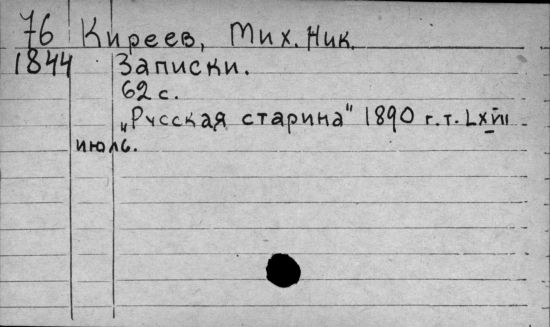 76 Киреев, Мих. Ник.
1844 Записки.
62 с.
„Русская старина" 1890 г. т. LXVII
июль.